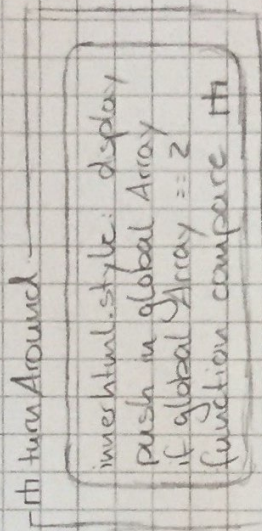 turnAround
innerhtml.style: display
push in global Array
if global Array == 2
function compare